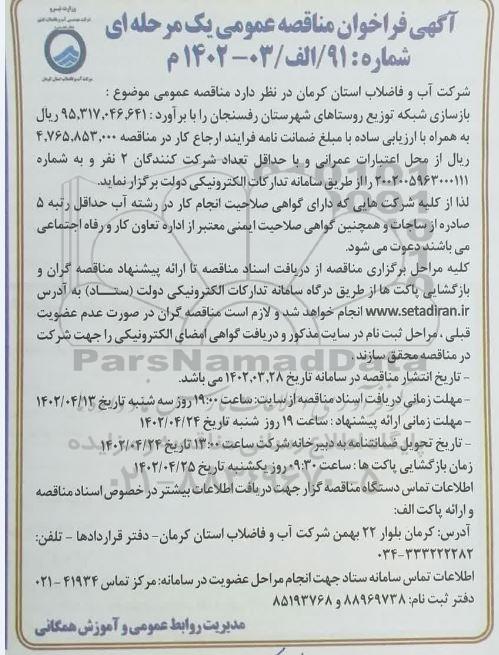 وزارت نیرو
شرکت مهندسی آب و فاضلاب کشور
شرکت آب و فاضلاب استان کرمان
آگهی فراخوان مناقصه عمومی یک مرحله ای
شماره : ۹۱/الف/۰۳-۱۴۰۲ م
شرکت آب و فاضلاب استان کرمان در نظر دارد مناقصه عمومی موضوع :
بازسازی شبکه توزیع روستاهای شهرستان رفسنجان را با برآورد : ۹۵,۳۱۷,۰۴۶,۶۴۱ ریال
به همراه با ارزیابی ساده با مبلغ ضمانت نامه فرایند ارجاع کار در مناقصه ۴,۷۶۵,۸۵۳,۰۰۰
ریال از محل اعتبارات عمرانی و با حداقل تعداد شرکت کنندگان ۲ نفر و به شماره
۲۰۰۲۰۰۵۹۶۳۰۰۰۱۱۱ را از طریق سامانه تدارکات الکترونیکی دولت برگزار نماید.
لذا از کلیه شرکت هایی که دارای گواهی صلاحیت انجام کار در رشته آب حداقل رتبه ۵
صادره از ساجات و همچنین گواهی صلاحیت ایمنی معتبر از اداره تعاون کار و رفاه اجتماعی
می باشند دعوت می شود.
کلیه مراحل برگزاری مناقصه از دریافت اسناد مناقصه تا ارائه پیشنهاد مناقصه گران و
بازگشایی پاکت ها از طریق درگاه سامانه تدارکات الکترونیکی دولت (ستـــاد) به آدرس
www.setadiran.ir انجام خواهد شد و لازم است مناقصه گران در صورت عدم عضویت
قبلی ، مراحل ثبت نام در سایت مذکور و دریافت گواهی امضای الکترونیکی را جهت شرکت
در مناقصه محقق سازند .
ParsNamadData
- تاریخ انتشار مناقصه در سامانه تاریخ ۱۴۰۲,۰۳,۲۸ می باشد.
- مهلت زمانی دریافت اسناد مناقصه از سایت: ساعت ۱۹:۰۰ روز سه شنبه تاریخ ۱۴۰۲/۰۴/۱۳
- مهلت زمانی ارائه پیشنهاد : ساعت ۱۹ روز شنبه تاریخ ۱۴۰۲/۰۴/۲۴
- تاریخ تحویل ضمانتنامه به دبیرخانه شرکت ساعت ۱۳:۰۰ تاریخ ۱۴۰۲/۰۴/۲۴
زمان بازگشایی پاکت ها : ساعت ۰۹:۳۰ روز یکشنبه تاریخ ۱۴۰۲/۰۴/۲۵
اطلاعات تماس دستگاه مناقصه گزار جهت دریافت اطلاعات بیشتر در خصوص اسناد مناقصه
و ارائه پاکت الف:
آدرس: کرمان بلوار ۲۲ بهمن شرکت آب و فاضلاب استان کرمان- دفتر قراردادها - تلفن:
۰۳۴-۳۳۳۲۲۲۸۲
اطلاعات تماس سامانه ستاد جهت انجام مراحل عضویت در سامانه: مرکز تماس ۴۱۹۳۴ -۰۲۱
دفتر ثبت نام: ۸۸۹۶۹۷۳۸ و ۸۵۱۹۳۷۶۸
مدیریت روابط عمومی و آموزش همگانی